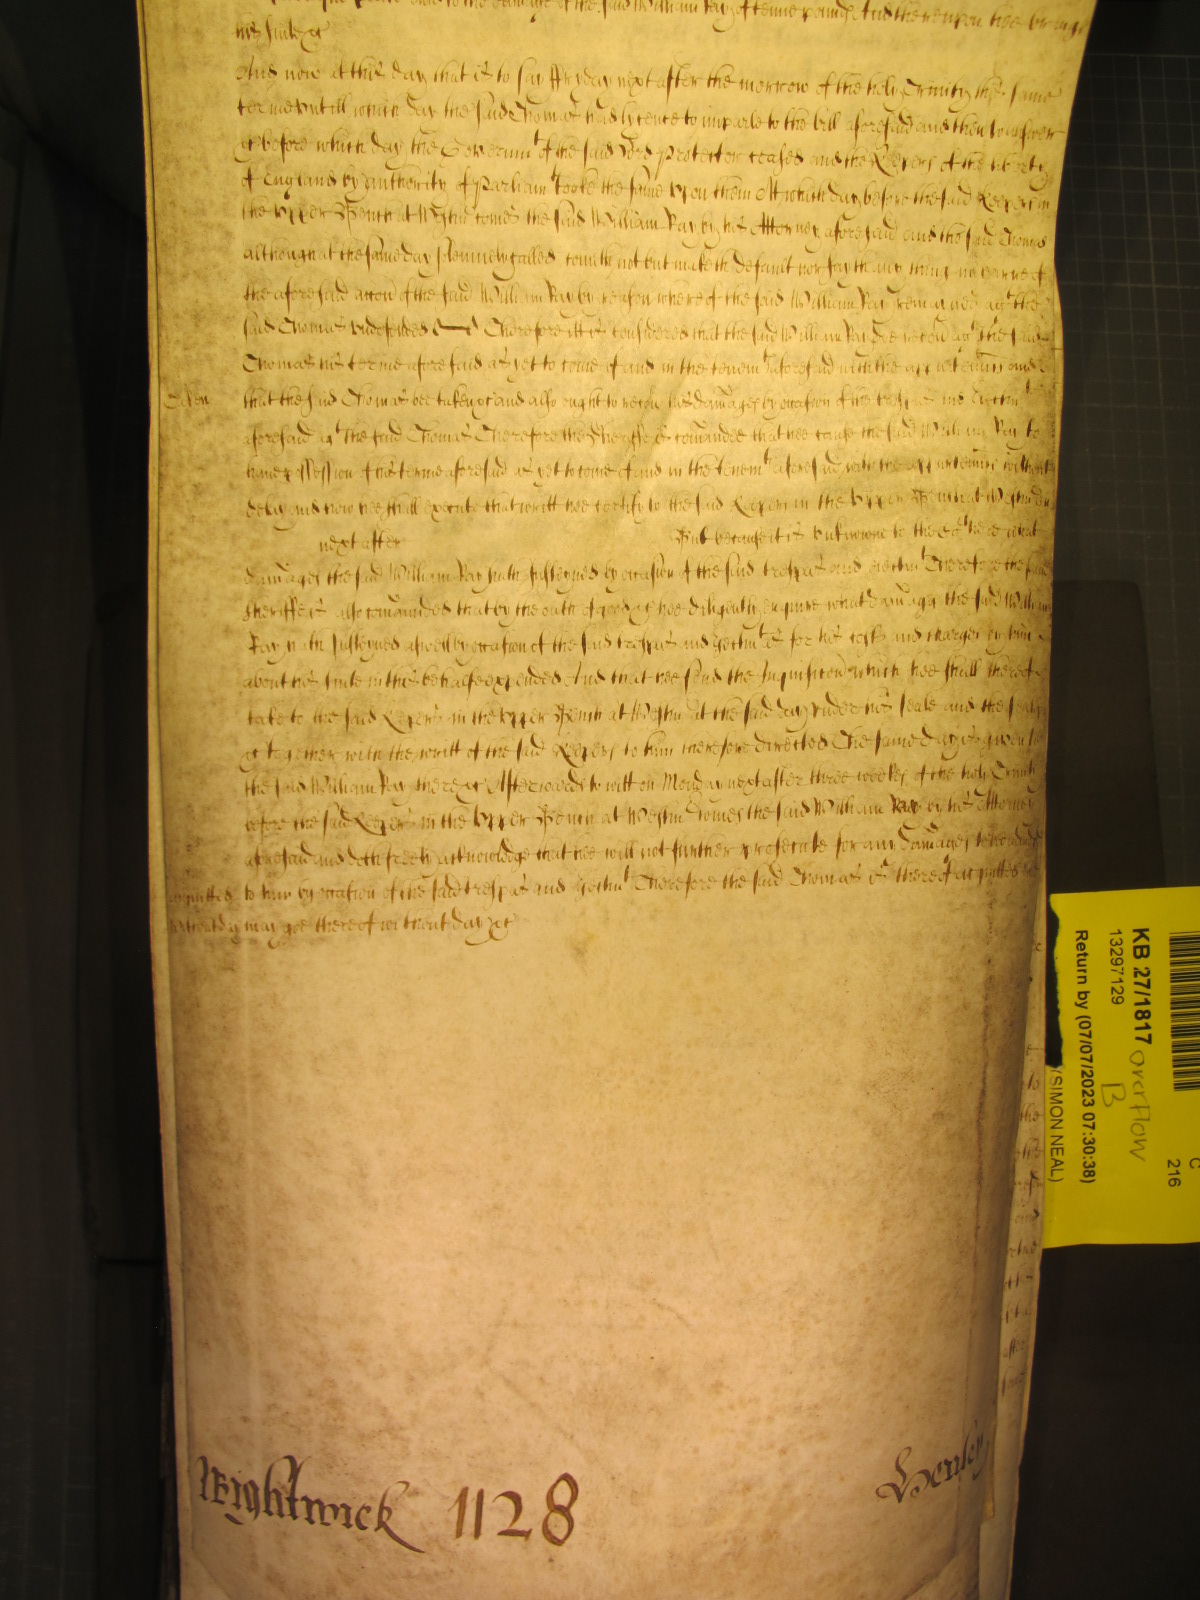 to the damage of the said William Ray of tenne pounds And thereupon hee brings
his suite &c
And now at this day that is to say ffryday next after the morrow of the holy Trinity this same
terme untill which day the said Thomas had lycence to imparle to the bill aforesaid and then to answer
&c before which day the Governmt of the said Lord Protector ceased and the Keepers of the liberty
of England by authority of Parliamt tooke the same upon them At which day before the said Keepers in
the Upper Bench at Westmr comes the said William Ray by his Attorney aforesaid and the said Thomas
although at the same day solemnely called cometh not but maketh default nor sayth any thing in barre of
the aforesaid accon of the said William Ray by reason whereof the said William Ray remaynes agt the
said Thomas undefended &c Therefore itt is considered that the said William Ray doe recover agt the said
Thomas his terme aforesaid as yet to come of and in the tenemts aforesaid with the appurtenncs and
Taken
that the said Thomas bee taken &c and also ought to recover his damages by occasion of the trespas and ejectmt
aforesaid agt the said Thomas Therefore the Sheriffe is comanded that hee cause the said William Ray to
have possession of his terme aforesaid as yet to come of and in the tenemts aforesaid with the appurtenncs without
delay and how hee shall execute that writt hee certify to the said Keepers in the Upper Bench at Westmr on
next after But because it is unknowne to the Court here what
damages the said William Ray hath susteyned by occasion of the said trespas and ejectmt Therefore the said
Sheriffe is also comanded that by the oath of good &c hee diligently enquire what damages the said William
Ray hath susteyned aswell by occasion of the said trespas and ejectmt as for his costs and charges by him
about his suite in this behalfe expended And that hee send the Inquisicon which hee shall thereof
take to the said Keepers in the Upper Bench at Westmr at the said day under his seale and the seales
&c together with the writt of the said Keepers to him therefore directed The same day is given to
the said William Ray there &c Afterwards to witt on Monday next after three weekes of the holy Trinity
before the said Keepers in the Upper Bench at Westmr comes the said William Ray by his Attorney
aforesaid and doth freely acknowledge that hee will not further prosecute for any damages to be adjudged
acquitted
to him by occasion of the said trespas and ejectmt Therefore the said Thomas is thereof acquitted
without day
may goe thereof without day &c
Wightwick 1128
Henley
KB 27/1817
13297129
Return by (07/07/2023 07:30:38)
(SIMON NEAL)
overflow
B
C
216